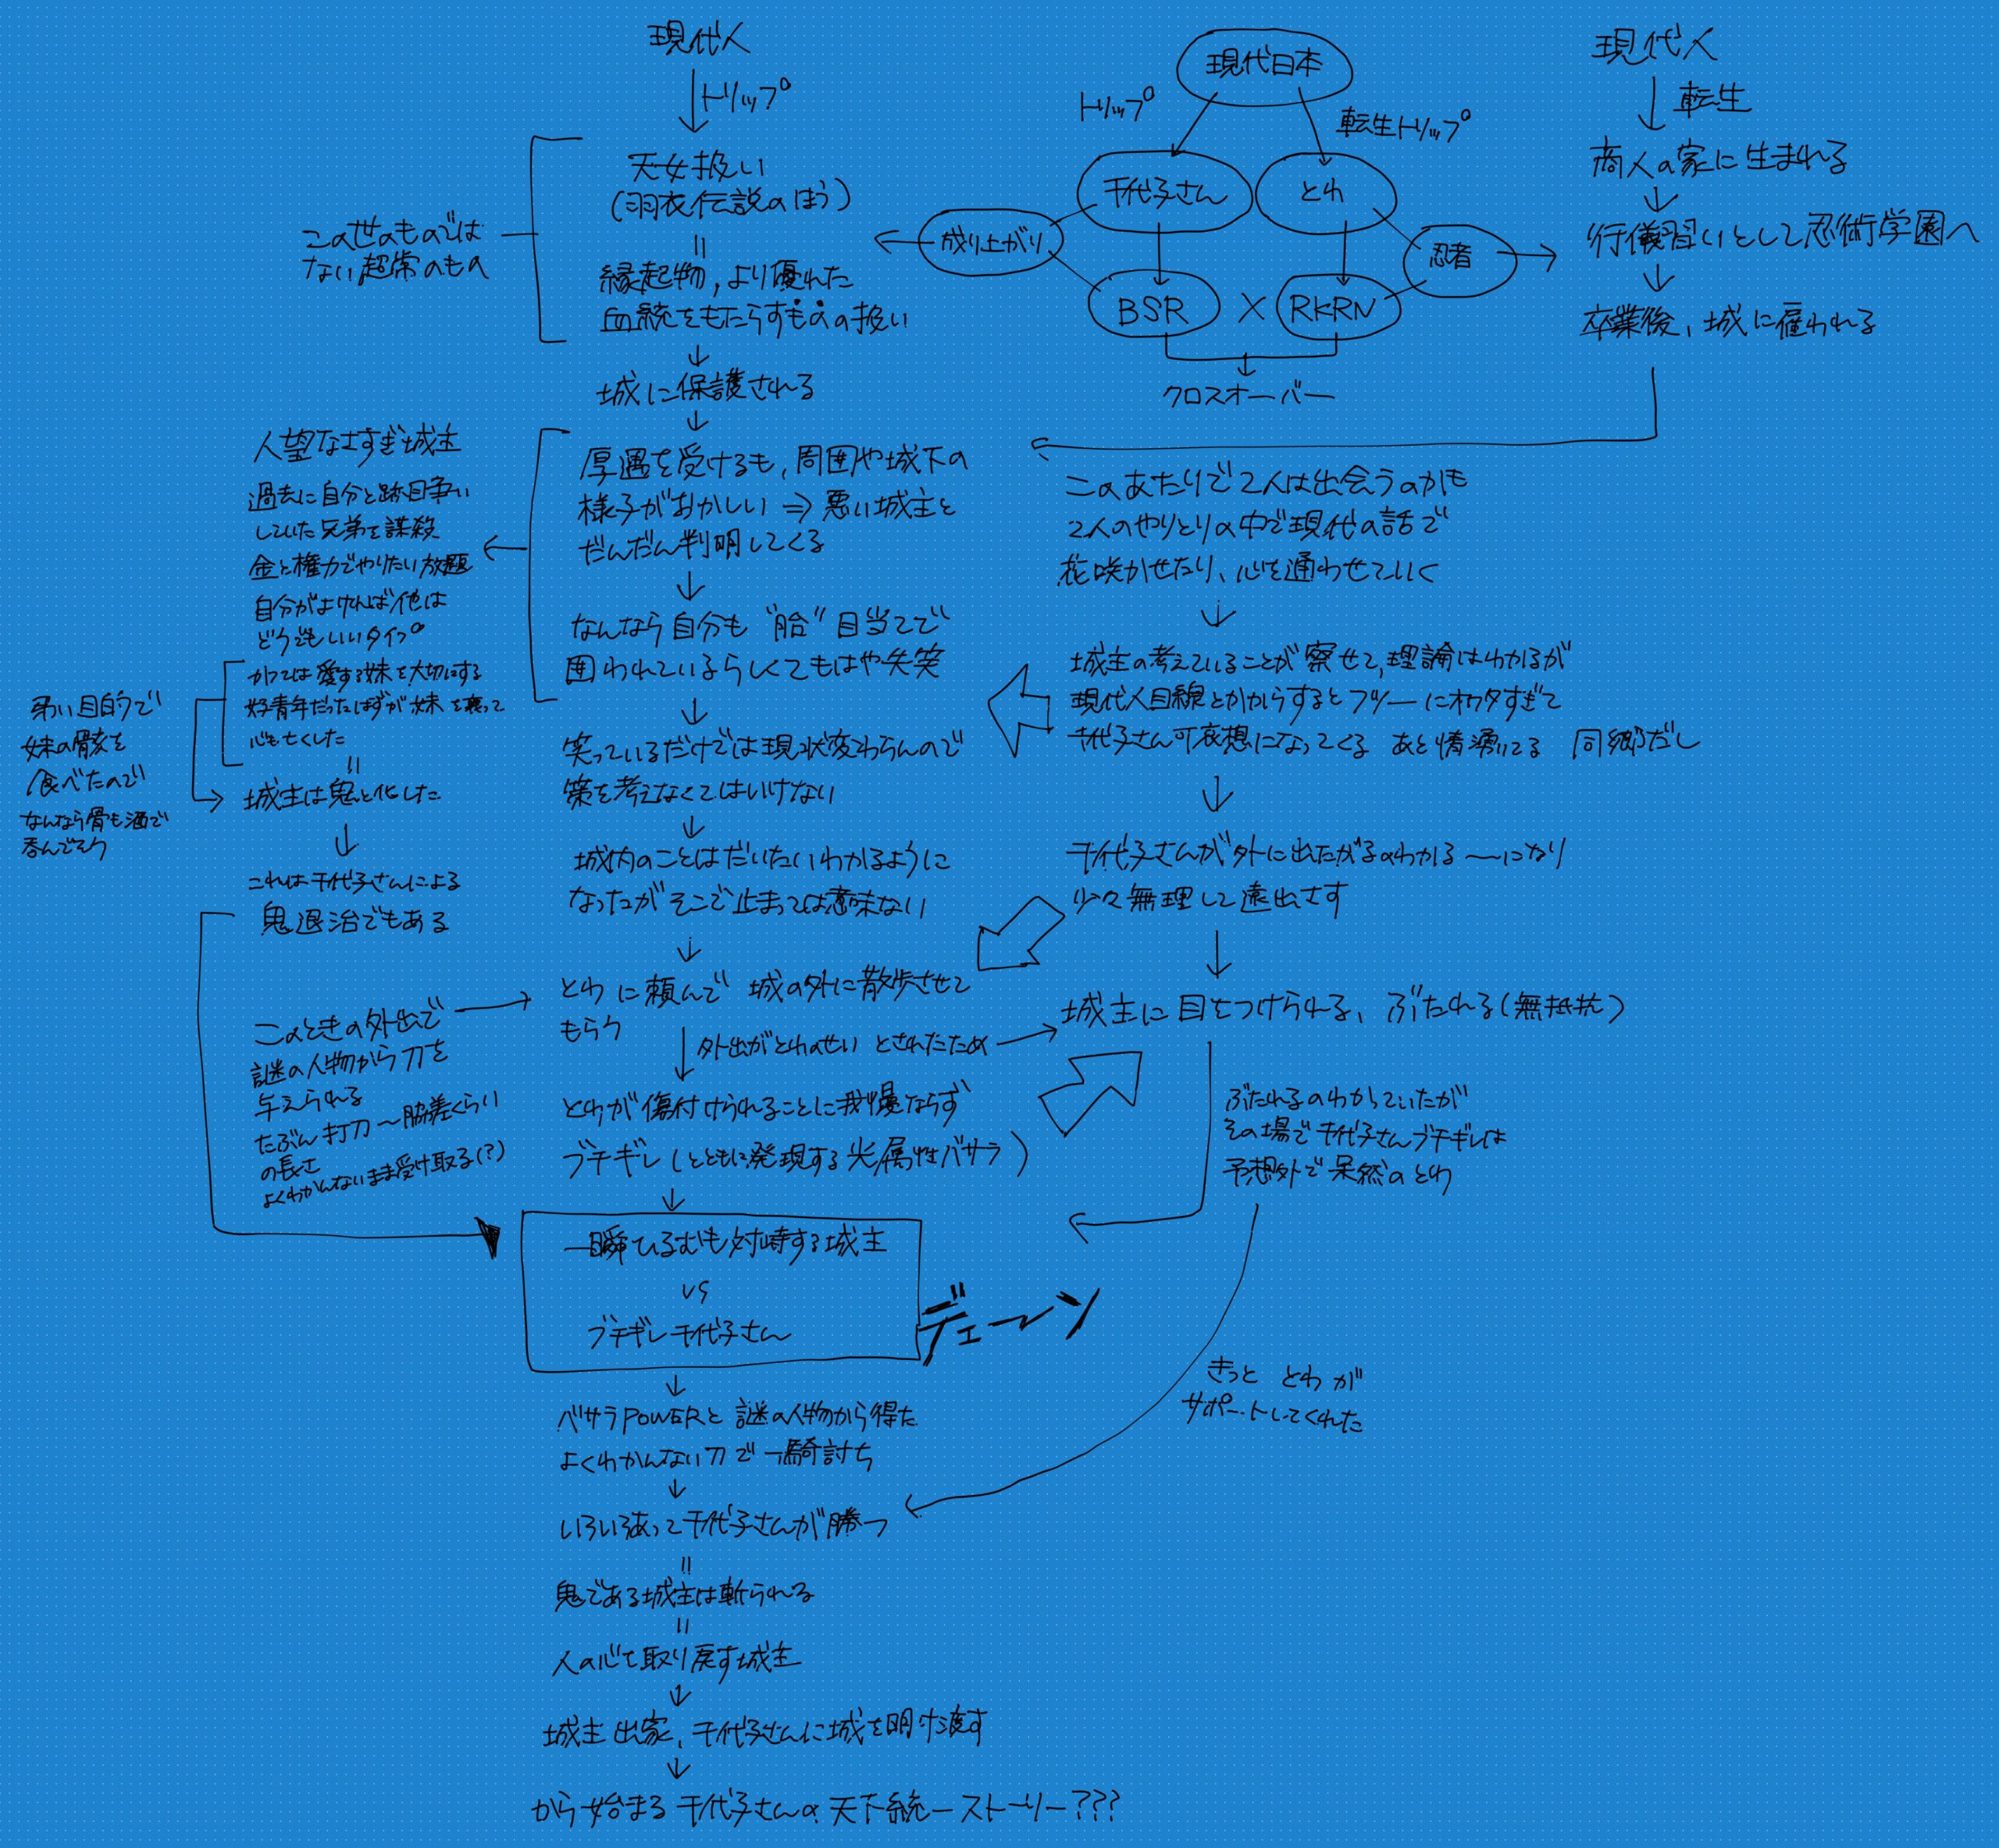 現代人
トリップ
天女扱い
(羽衣伝説のほう)
=
縁起物,より優れた
血統をもたらすものの扱い
この世のものでは
ない超常のもの
城に保護される
厚遇を受けるも,周囲や城下の
様子がおかしい ⇒ 悪い城主と
だんだん判明してくる
なんなら自分も"胎"目当てで
囲われているらしくてもはや失笑
人望なさすぎ城主
過去に自分と跡目争い
していた兄弟を謀殺
金と権力でやりたい放題
自分がよければ他は
どうでもいいタイプ
かつては愛する妹を大切にする
好青年だったはずが妹を喪って
心も亡くした
=
城主は鬼と化した
弔い目的で
妹の骸を
食べたので
なんなら骨も酒で
呑んでそう
これは千代子さんによる
鬼退治でもある
笑っているだけでは現状変わらんので
策を考えなくてはいけない
城内のことはだいたいわかるように
なったがそこで止まっては意味ない
とわに頼んで 城の外に散歩させて
もらう
このときの外出で
謎の人物から刀を
与えられる
たぶん打刀〜脇差くらい
の長さ
よくわかんないまま受け取る(?)
外出がとわのせいとされたため
とわが傷付けられることに我慢ならず
ブチギレ(とともに発現する光属性バサラ)
一瞬ひるむも対峙する城主
vs
ブチギレ千代子さん
デェーン
バサラPOWERと謎の人物から得た
よくわかんない刀で一騎討ち
いろいろあって千代子さんが勝つ
=
鬼である城主は斬られる
=
人の心を取り戻す城主
城主出家,千代子さんに城を明け渡す
から始まる千代子さんの天下統一ストーリー???
現代日本
トリップ
転生トリップ
千代子さん
とわ
成り上がり
忍者
BSR × RKRN
クロスオーバー
現代人
転生
商人の家に生まれる
行儀習いとして忍術学園へ
卒業後、城に雇われる
このあたりで2人は出会うのかも
2人のやりとりの中で現代の話で
花咲かせたり、心を通わせていく
城主の考えていることが察せて,理論はわかるが
現代人目線とかからするとフツーにオワタすぎて
千代子さん可哀想になってくる あと情湧いてる 同郷だし
千代子さんが外に出たがるのわかる〜になり
少々無理して遠出さす
城主に目をつけられる、ぶたれる(無抵抗)
ぶたれるのわかっていたが
その場で千代子さんブチギレは
予想外で呆然のとわ
きっと とわが
サポートしてくれた